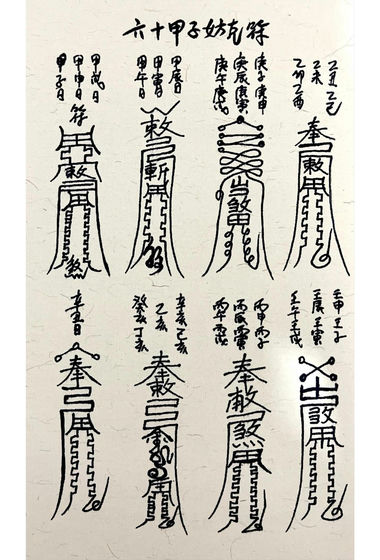 六十甲子妨克符
乙丑乙巳
乙未
乙卯乙酉
奉
敕
用
庚子庚申
庚辰庚寅
庚午庚戌
出
煞
用
甲辰日
甲寅日
甲午日
敕
斬
用
甲戌日
甲申日
甲子日
符
敕
用
煞
壬申壬子
壬辰壬寅
壬午壬戌
出
煞
用
丙申丙子
丙辰丙寅
丙午丙戌
奉
敕
煞
用
辛亥己亥
乙亥
癸亥丁亥
奉
敕
用
辛丑日
奉
用